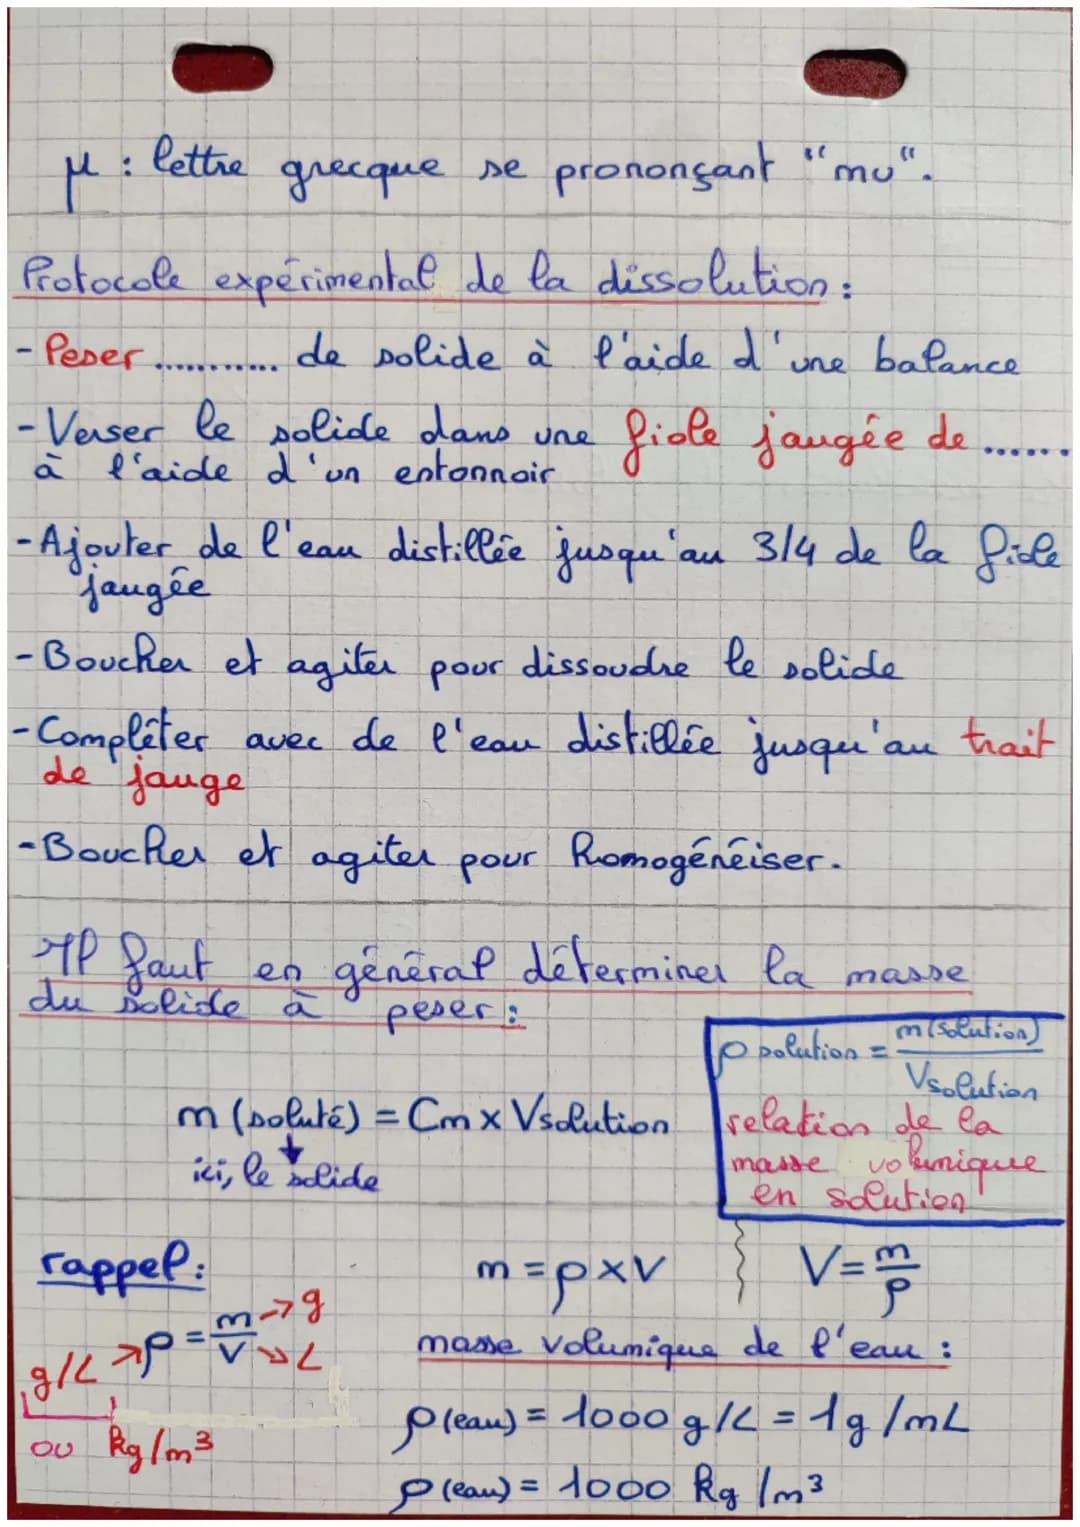 μ : lettre grecque se prononçant "mu".
Protocole expérimental de la dissolution :
- Peser ............ de solide à l'aide d'une balance
- Verser le solide dans une fiole jaugée de ......
à l'aide d'un entonnoir
- Ajouter de l'eau distillée jusqu'au 3/4 de la fiole
jaugée
- Boucher et agiter pour dissoudre le solide
- Compléter avec de l'eau distillée jusqu'au trait
de jauge
- Boucher et agiter pour homogénéiser.
Il faut en général déterminer la masse
du solide à peser :
ρ solution = m(solution) / Vsolution
relation de la
masse volumique
en solution
m (soluté) = Cm x Vsolution
↓
ici, le solide
rappel :
m = ρ x V
V = m/ρ
g/L → ρ = m/V → g → L
ou kg/m³
masse volumique de l'eau :
ρ(eau) = 1000 g/L = 1g/mL
ρ(eau) = 1000 kg/m³